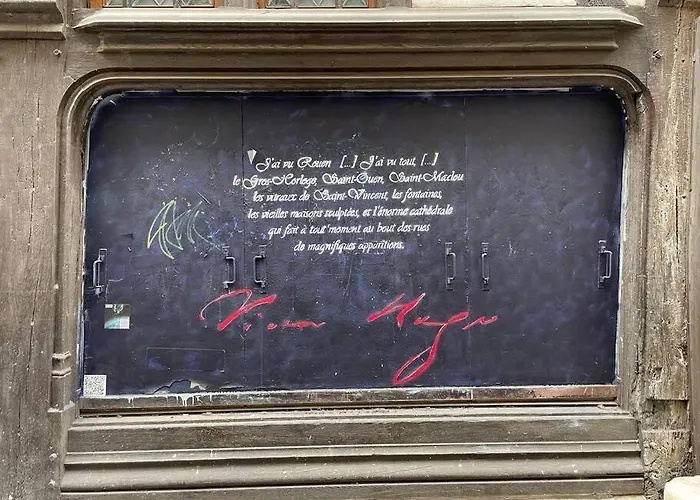 J'ai vu Rouen [...] J'ai vu tout, [...]
le Gros-Horloge, Saint-Ouen, Saint-Maclou
les vitraux de Saint-Vincent, les fontaines,
les vieilles maisons sculptées, et l'énorme cathédrale
qui fait à tout moment au bout des rues
de magnifiques apparitions.
Victor Hugo